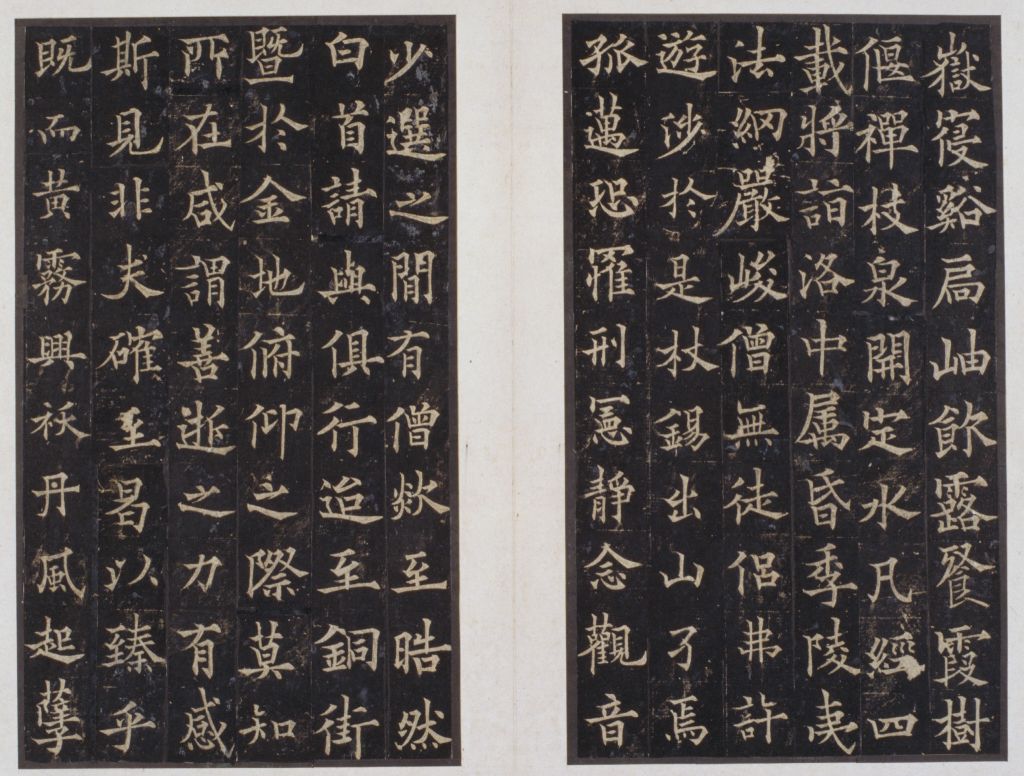 嶽寑谿扃岫飲露飱霞樹
偃禪枝泉開定水凡經四
載將詣洛中属昏季陵夷
法網嚴峻僧無徒侶弗許
遊涉於是杖錫出山了焉
孤邁恐罹刑憲靜念觀音
少選之間有僧欻至皓然
白首請與俱行迨至銅街
暨於金地俯仰之際莫知
所在咸謂善逝之力有感
斯見非夫確至曷以臻乎
既而黃霧興祅丹風起孽